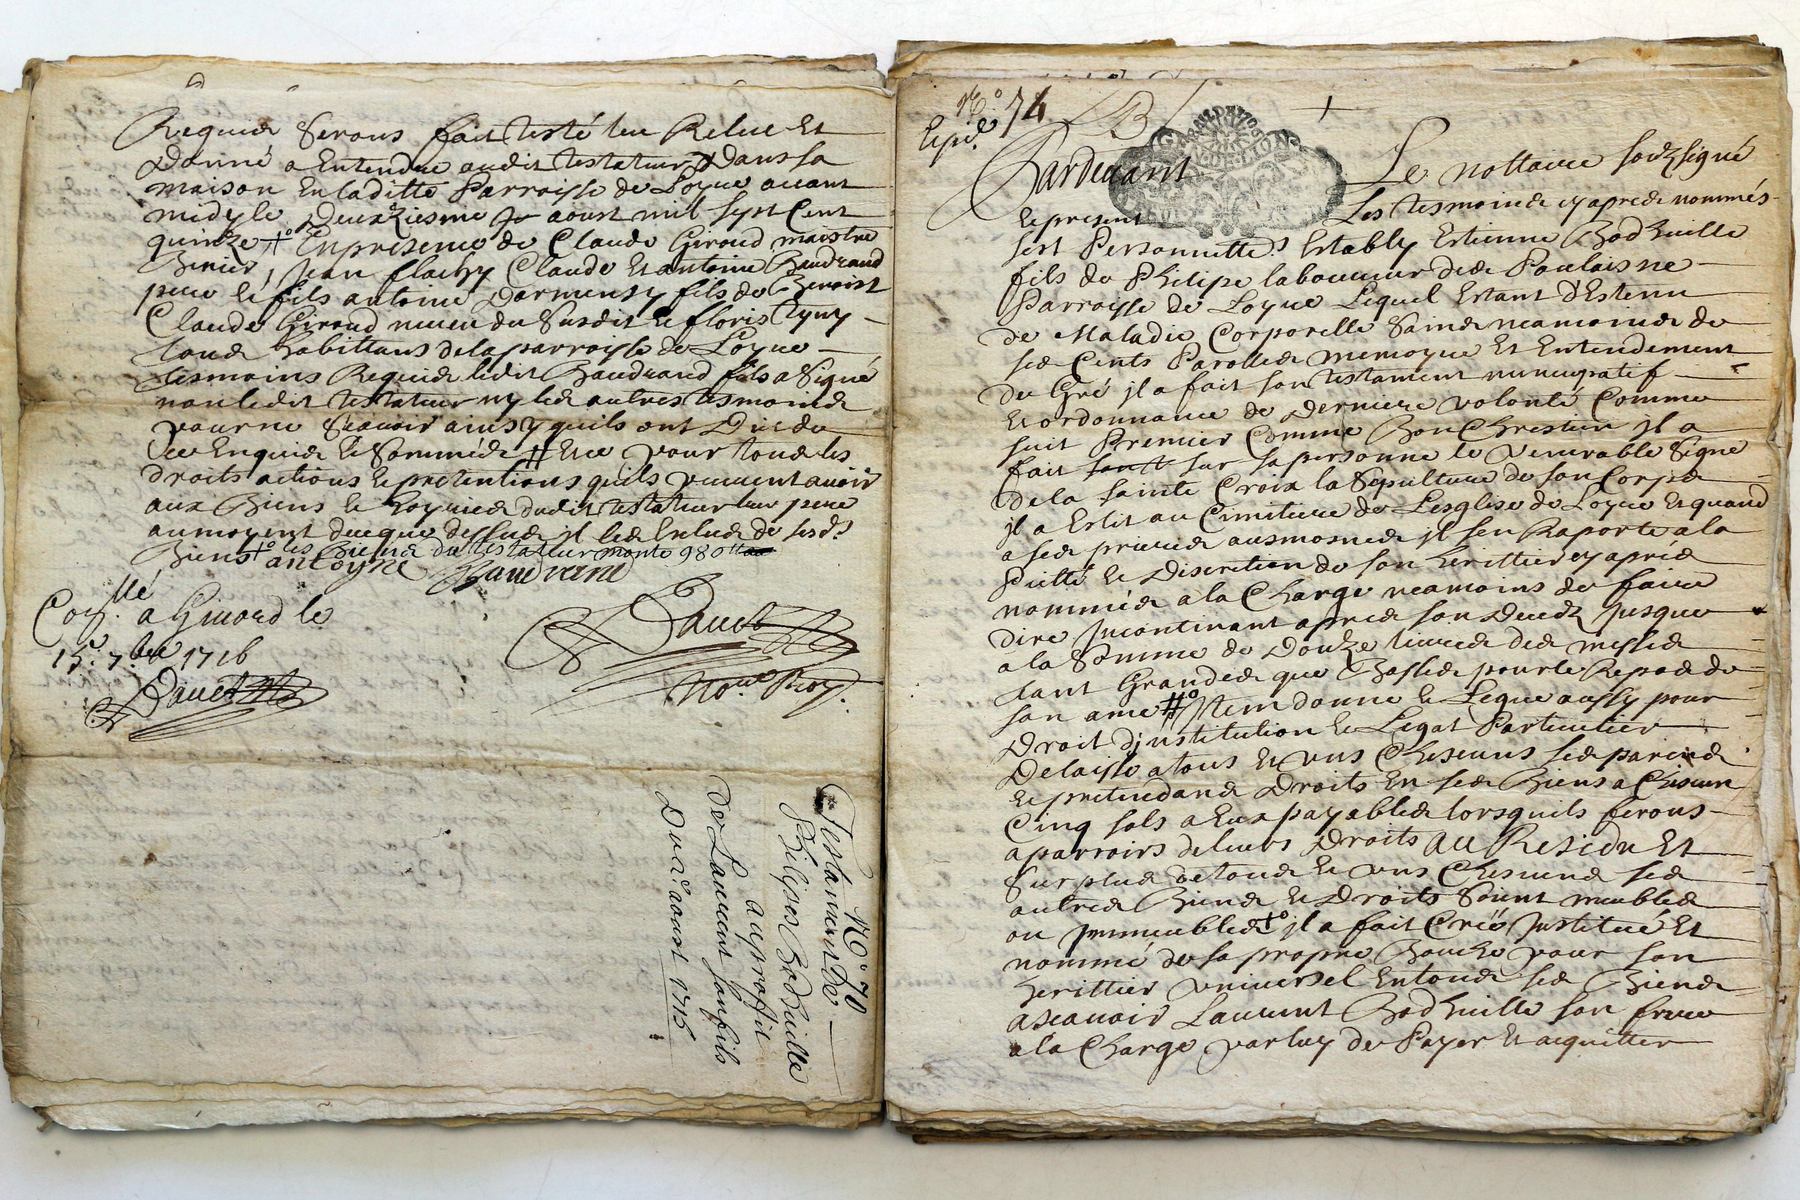 Requis Serons fait testé leu Releu Et
Donné a Entendre audit testateur dans sa
maison En laditte Parroisse de Loyre auant
midy le deuxziesme aoust mil sept Cent
quinze En presence de Claude Giroud maistre
Jean flachy Claude Et antoine Baudrand
pere & fils antoine Dormeusy fils de Benoist
Claude Giroud neveu du Susdit & floris
tous habittans de la parroisse de Loyre
tesmoins Requis ledit Baudrand fils a Signé
non ledit testateur ny les autres tesmoins
pour ne Scauoir ainsy quils ont Dit de
ce Enquis & Sommés # Et ce pour tous les
droits actions & pretentions quils peuuent auoir
aux Biens & hoyries dudit testateur leur pere
au moyent de ce que dessus il les Exclud de sesd.
Biens les Biens du testateur monte 980
antoyne Baudrand
Coll. a Giuord le
15. 7.bre 1716
Dauet
Dauet
No.re Roy.
N.o 70
Testament de
Philipes Bodhuille
a aproffit
de Laurent son fils
Du 2 aoust 1715
N.o 74
Exped.
Pardeuant Le nottaire Soubzsigné
& present Les tesmoins cy apres nommés
fest Personnelle.t Estably Estienne Bodhuille
fils de Philipe laboureur des Poulaisne
Parroisse de Loyre Lequel Estant d'Estenu
de Maladie Corporelle Sains neamoins de
ses Cents Parolles memoyre Et Entendement
de Gré il a fait son testament nuncupatif
Et ordonnance de derniere volonté Comme
suit Premier Comme Bon Chrestien il a
fait sur sa personne le venerable Signe
de la sainte Croix la Sepulture de son Corps
il a Eslit au Cimitiere de Lesglise de Loyre Et quand
a ses prieres ausmosnes il sen Raporte a la
Pietté & Discretion de son heritier cy apres
nommés a la Charge neamoins de faire
dire Incontinant apres son Decedz Jusque
a la Somme de Douze liures des messes
tant Grandes que Basses pour le Repos de
son ame # Item donne & Legue aussy pour
Droit d'institution & Legat Particulier
Delaisse a tous Et uns Chescuns ses parens
& pretendans Droits En ses Biens a Chescun
Cinq sols a Eux payables lorsquils ferons
aparroirs de leurs Droits AU Residu Et
Surplus de tous & uns Chescuns ses
autres Biens & Droits Soient meubles
ou Immeubles il a fait Créé Institué Et
nommé de sa propre Bouche pour son
heritier vniuersel En tous ses Biens
ascauoir Laurent Bodhuille son frere
a la Charge par luy de Payer Et acquitter